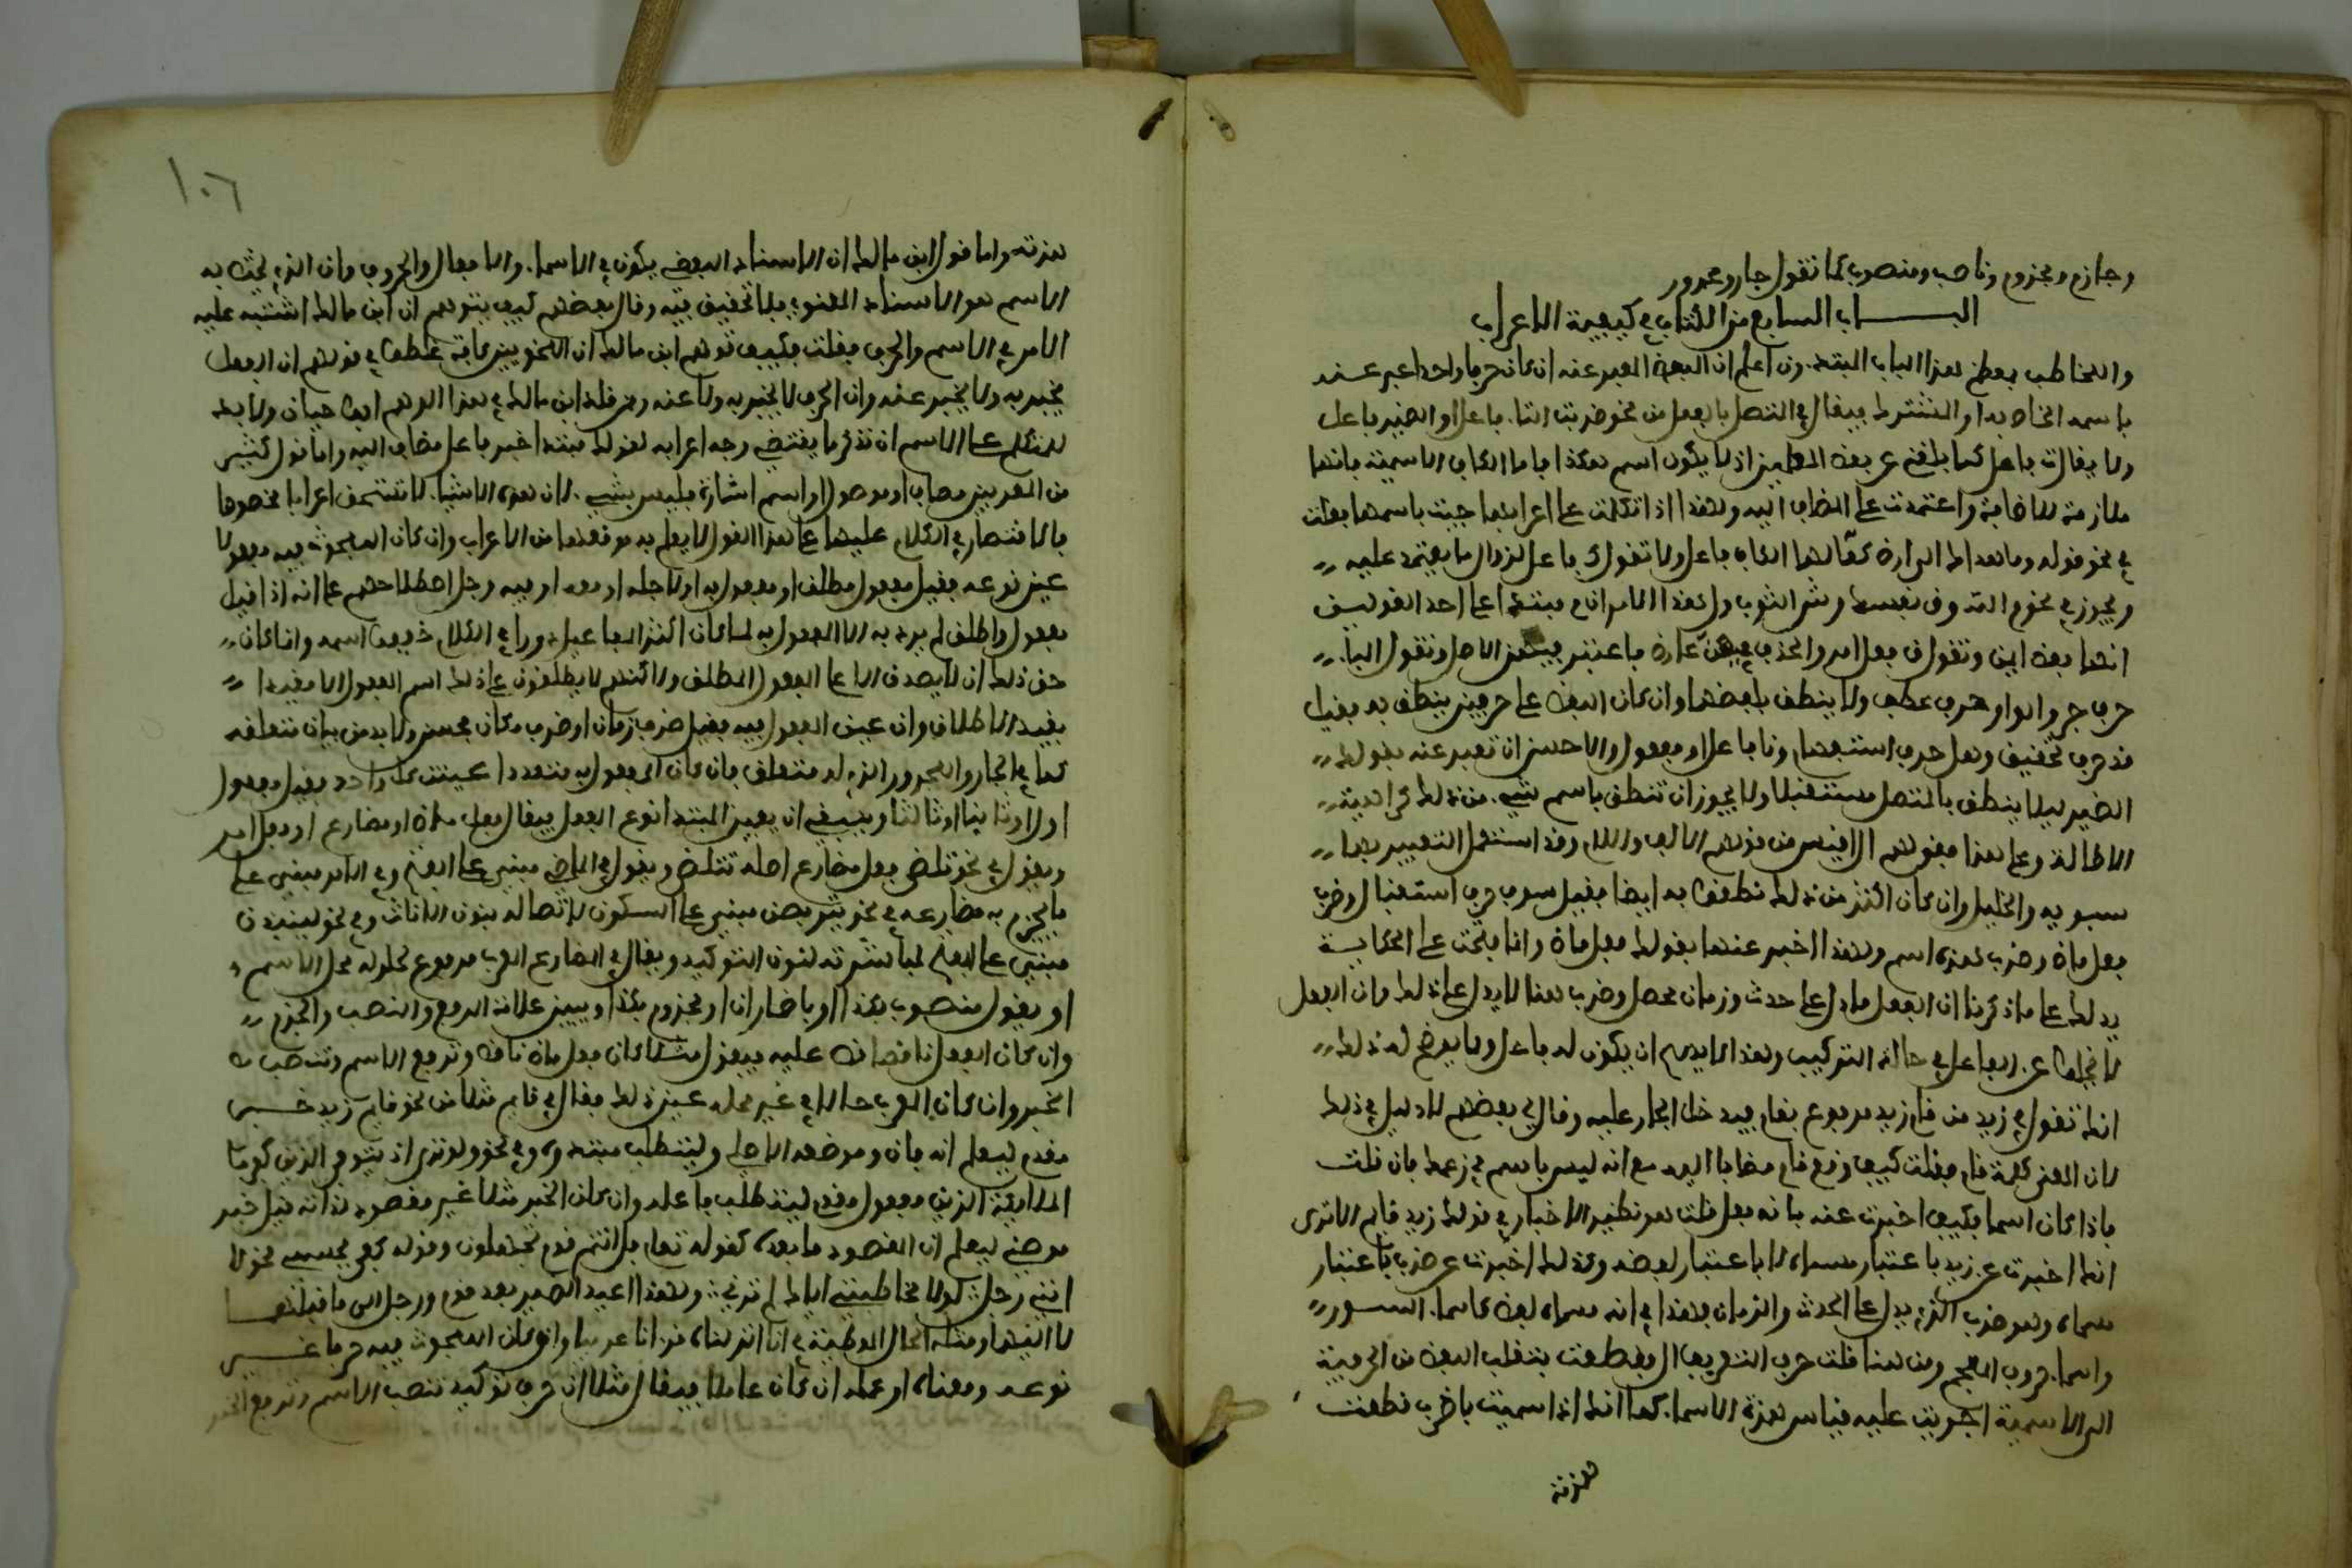 وجازم ومجزوم وناصب ومنصوب كما تقول جار ومجرور
البـــاب السابع من الكتاب في كيفية الاعراب
والمخاطب بمعظم هذا الباب المبتدءون اعلم ان اللفظ المعبر عنه ان كان حرفا واحدا عبر عنه
باسمه الخاص به او المشترك فيقال في المتصل بالفعل من نحو ضربت التاء فاعل او الضمير فاعل
ولا يقال ت فاعل كما بلغني عن بعض المعلمين اذ لا يكون اسم هكذا فاما الكاف الاسمية فانها
ملازمة للاضافة واعتمدت على المضاف اليه ولهذا اذا تكلمت على اعرابها جيت باسمها فقلت
في نحو قوله وما هداك الى ارض كعالمها الكاف فاعل ولا تقول ك فاعل لزوال ما يعتمد عليه
ويجوز في نحو م الله وق نفسك وش الثوب ول هذا الامر ان م مبتدا على احد القولين
انها بعض ايمن وتقول ق فعل امر والحذف فيهن عارض فاعتبر فيهن الاصل وتقول الباء
حرف جر والواو حرف عطف ولا ينطق بلفظها وان كان اللفظ على حرفين ينطق به فقيل
قد حرف تحقيق وهل حرف استفهام ونا فاعل او مفعول والاحسن ان تعبر عنه بقولك
الضمير ليلا ينطق بالمتصل مستقبلا ولا يجوز ان تنطق باسم شيء من ذلك كراهية
الاطالة وعلى هذا فقولهم ال اقيس من قولهم الالف واللام وقد استعمل التعبير بهما
سيبويه والخليل وان كان اكثر من ذلك نطقت به ايضا فقيل سوف حرف استقبال وضرب
فعل ماض وضرب هذه اسم ولهذا اخبر عنها بقولك فعل ماض وانما فتحت على الحكاية
يدلك على ما ذكرنا ان الفعل ما دل على حدث وزمان محصل وضرب هنا لا يدل على ذلك وان الفعل
لا يخلو عن الفاعل في حالة التركيب وهذا لا يصح ان يكون له فاعل ومما يوضح لك ذلك
انك تقول في زيد من قام زيد مرفوع بقام فيدخل الجار عليه وقال لي بعضهم لا دليل في ذلك
لان المعنى كلمة قام فقلت كيف وقع قام مضافا اليه مع انه ليس باسم في زعمك فان قلت
فاذا كان اسما فكيف اخبرت عنه بانه فعل قلت هو نظير الاخبار في قولك زيد قايم الا ترى
انك اخبرت عن زيد باعتبار مسماه لا باعتبار لفظه وكذلك اخبرت عن ضرب باعتبار
مسماه وهو ضرب الذي يدل على الحدث والزمان فهذا في انه مسماه لفظ كاسماء السور
واسماء حروف المعجم ومن هنا قلت حرف التعريف ال فقطعت بنقلب اللفظ من الحرفية
الى الاسمية اجريت عليه قياس همزة الاسماء كما انك اذا سميت باضرب قطعت
همزته
١٠٦
همزته واما قول ابن مالك ان الاسناد اللفظي يكون في الاسماء والافعال والحروف وان الذي يختص به
الاسم هو الاسناد المعنوي فلا تحقيق فيه وقال بعضهم كيف يتوهم ان ابن مالك اشتبه عليه
الامر في الاسم والحرف فقلت فكيف توهم ابن مالك ان النحويين كافة غلطوا في قولهم ان الفعل
يخبر به ولا يخبر عنه وان الحرف لا يخبر به ولا عنه وممن قلد ابن مالك في هذا الوهم ابو حيان ولا بد
للمتكلم على الاسم ان تذكر ما يقتضي وجه اعرابه كقولك مبتدا خبر فاعل مضاف اليه واما قول كثير
من المعربين مضاف او موصول او اسم اشارة فليس بشيء لان هذه الاشياء لا تستحق اعرابا مخصوصا
فالاقتصار في الكلام عليها على هذا القول لا يعلم به موقعها من الاعراب وان كان المبحوث فيه مفعولا
عين نوعه فقيل مفعول مطلق او مفعول به او لاجله او معه او فيه وجرى اصطلاحهم على انه اذا قيل
مفعول واطلق لم يرد به الا المفعول به لما كان اكثر المفاعيل دورا في الكلام خففوا اسمه وانما كان
حق ذلك ان لا يصدق الا على المفعول المطلق ولاكنهم لا يطلقون على ذلك اسم المفعول الا مقيدا
بقيد الاطلاق وان عين المفعول فيه فقيل ظرف زمان او ظرف مكان فحسن ولا بد من بيان متعلقه
كما في الجار والمجرور الذي له متعلق فان كان المفعول به متعددا عينت كل واحد فقيل مفعول
اول او ثانيا او ثالثا وينبغي ان يعين المبتدا نوع الفعل فيقال فعل ماض او مضارع او فعل امر
ويقول في نحو تلظى فعل مضارع اصله تتلظى ويقول في الماضي مبني على الفتح وفي الامر مبني على
ما يجزم به مضارعه في نحو يتربصن مبني على السكون لاتصاله بنون الاناث وفي نحو لينبذن
مبني على الفتح لمباشرته لنون التوكيد ويقال في المضارع المعرب مرفوع لحلوله محل الاسم
او يقول منصوب بكذا او باضمار ان او مجزوم بكذا ويبين علامة الرفع والنصب والجزم
وان كان الفعل ناقصا نص عليه فيقول مثلا كان فعل ماض ناقص وترفع الاسم وتنصب
الخبر وان كان المعرب حالا في غير محله عين ذلك فيقال في قايم مثلا من نحو قايم زيد خبر
مقدم ليعلم انه فارق موضعه الاصلي وليتطلب مبتداه وفي نحو ولو ترى اذ يتوفى الذين كفروا
الملايكة الذين مفعول مقدم ليتطلب فاعله وان كان الخبر مثلا غير مقصود لذاته قيل خبر
موطئ ليعلم ان المقصود ما بعده كقوله تعلى بل انتم قوم تجهلون وقوله كفى بجسمي نحولا
انني رجل لولا مخاطبتي اياك لم ترني ولهذا اعيد الضمير بعد قوم ورجل الى ما قبلهما
لا اليهما ومثله الحال الموطئة في انا انزلناه قرءانا عربيا وان كان المبحوث فيه حرفا عين
نوعه ومعناه او عمله ان كان عاملا فيقال مثلا ان حرف توكيد تنصب الاسم وترفع الخبر